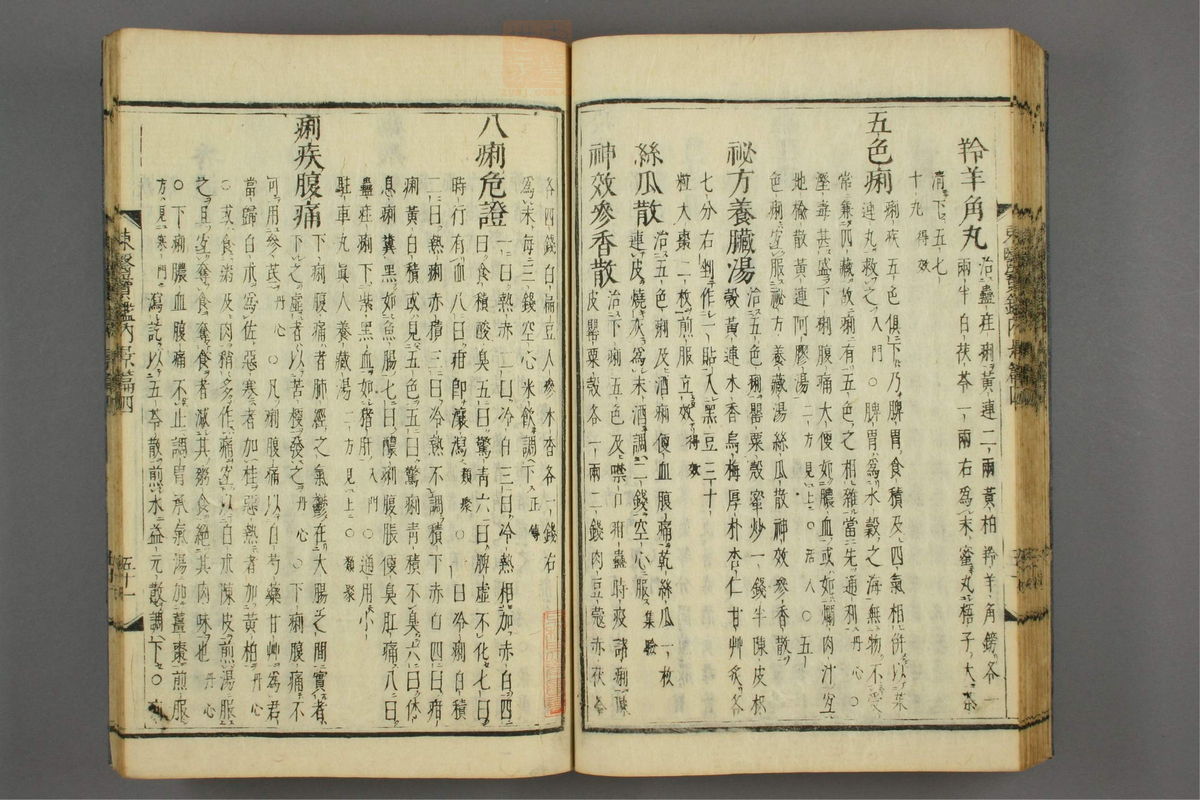 羚羊角丸 治蠱疰痢黃連二兩黃柏羚羊角鎊各一
兩半白茯苓一兩右爲末蜜丸梧子大茶
清下五七
十丸得效
五色痢 五色俱下乃脾胃食積及四氣相併以茱
連丸救之入門○脾胃爲水穀之海無物不受
痢疾
常兼四藏故痢有五色之相雜當先通利丹心○
溼毒甚盛下痢腹痛大便如膿血或如爛肉汁宜
地榆散黃連阿膠湯二方見上活人○五
色痢宜服祕方養臟湯絲瓜散神效參香散
祕方養臟湯 治五色痢罌粟殼蜜炒一錢半陳皮枳
殼黃連木香烏梅厚朴杏仁甘艸炙各
七分右剉作一貼入黑豆三十
粒大棗二枚煎服立效得效
絲瓜散 治五色痢及酒痢便血腹痛乾絲瓜一枚
連皮燒灰爲末酒調二錢空心服集驗
神效參香散 治下痢五色及噤口疳蠱時疫諸痢陳
皮罌粟殼各一兩二錢肉豆蔻赤茯苓
各四錢白扁豆人參木香各一錢右
爲末每三錢空心米飮調下正傳
八痢危證 一曰熱赤二曰冷白三曰冷熱相加赤白四
曰食積酸臭五曰驚靑六曰脾虛不化七曰
時行有血八曰疳卽瀼瀉類聚○一曰冷痢白積
二曰熱痢赤積三曰冷熱不調積下赤白四曰疳
痢黃白積或見五色五曰驚痢靑積不臭六曰休
息痢糞黑如魚腸七曰膿痢腹脹便臭肛痛八曰
蠱疰痢下紫黑血如猪肝入門○通用小
駐車丸眞人養藏湯二方見上○類聚
痢疾腹痛 下痢腹痛者肺經之氣鬱在大腸之間實者
下之虛者以苦梗發之丹心○下痢腹痛不
可用參芪丹心○凡痢腹痛以白芍藥甘艸爲君
當歸白朮爲佐惡寒者加桂惡熱者加黃柏丹心
○或食粥及肉稍多作痛宜以白朮陳皮煎湯服
之且宜奪食奪食者減其粥食絕其肉味也丹心
○下痢膿血腹痛不止調胃承氣湯加薑棗煎服
方見寒門瀉訖以五苓散煎水益元散調下
東醫寶鑑內景篇四
五十一